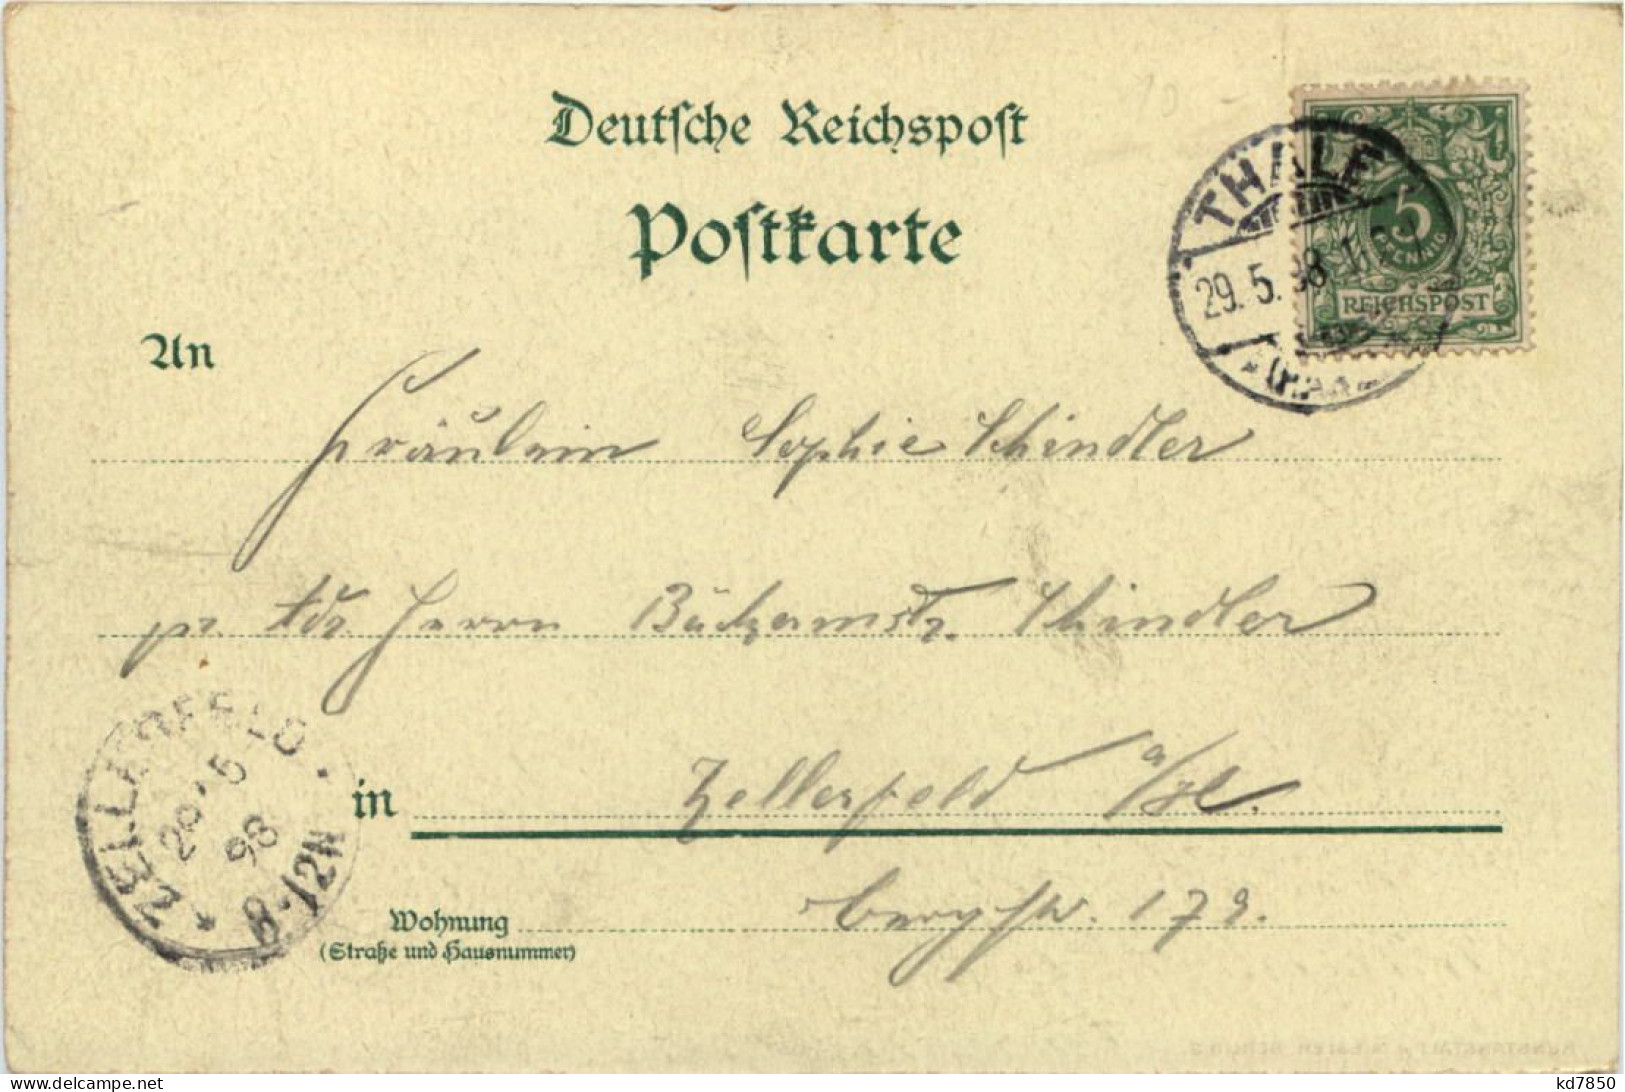 Deutsche Reichspost
Postkarte
THALE
29. 5. 98
(HARZ)
5
PFENNIG
REICHSPOST
An
Fräulein Sophie Schindler
pr. Adr. Herrn Schindler
in Zellerfeld a/H.
ZELLERFELD
29 5
98
8-12N
Wohnung
(Straße und Hausnummer)
Bergstr. 179.
kd7850